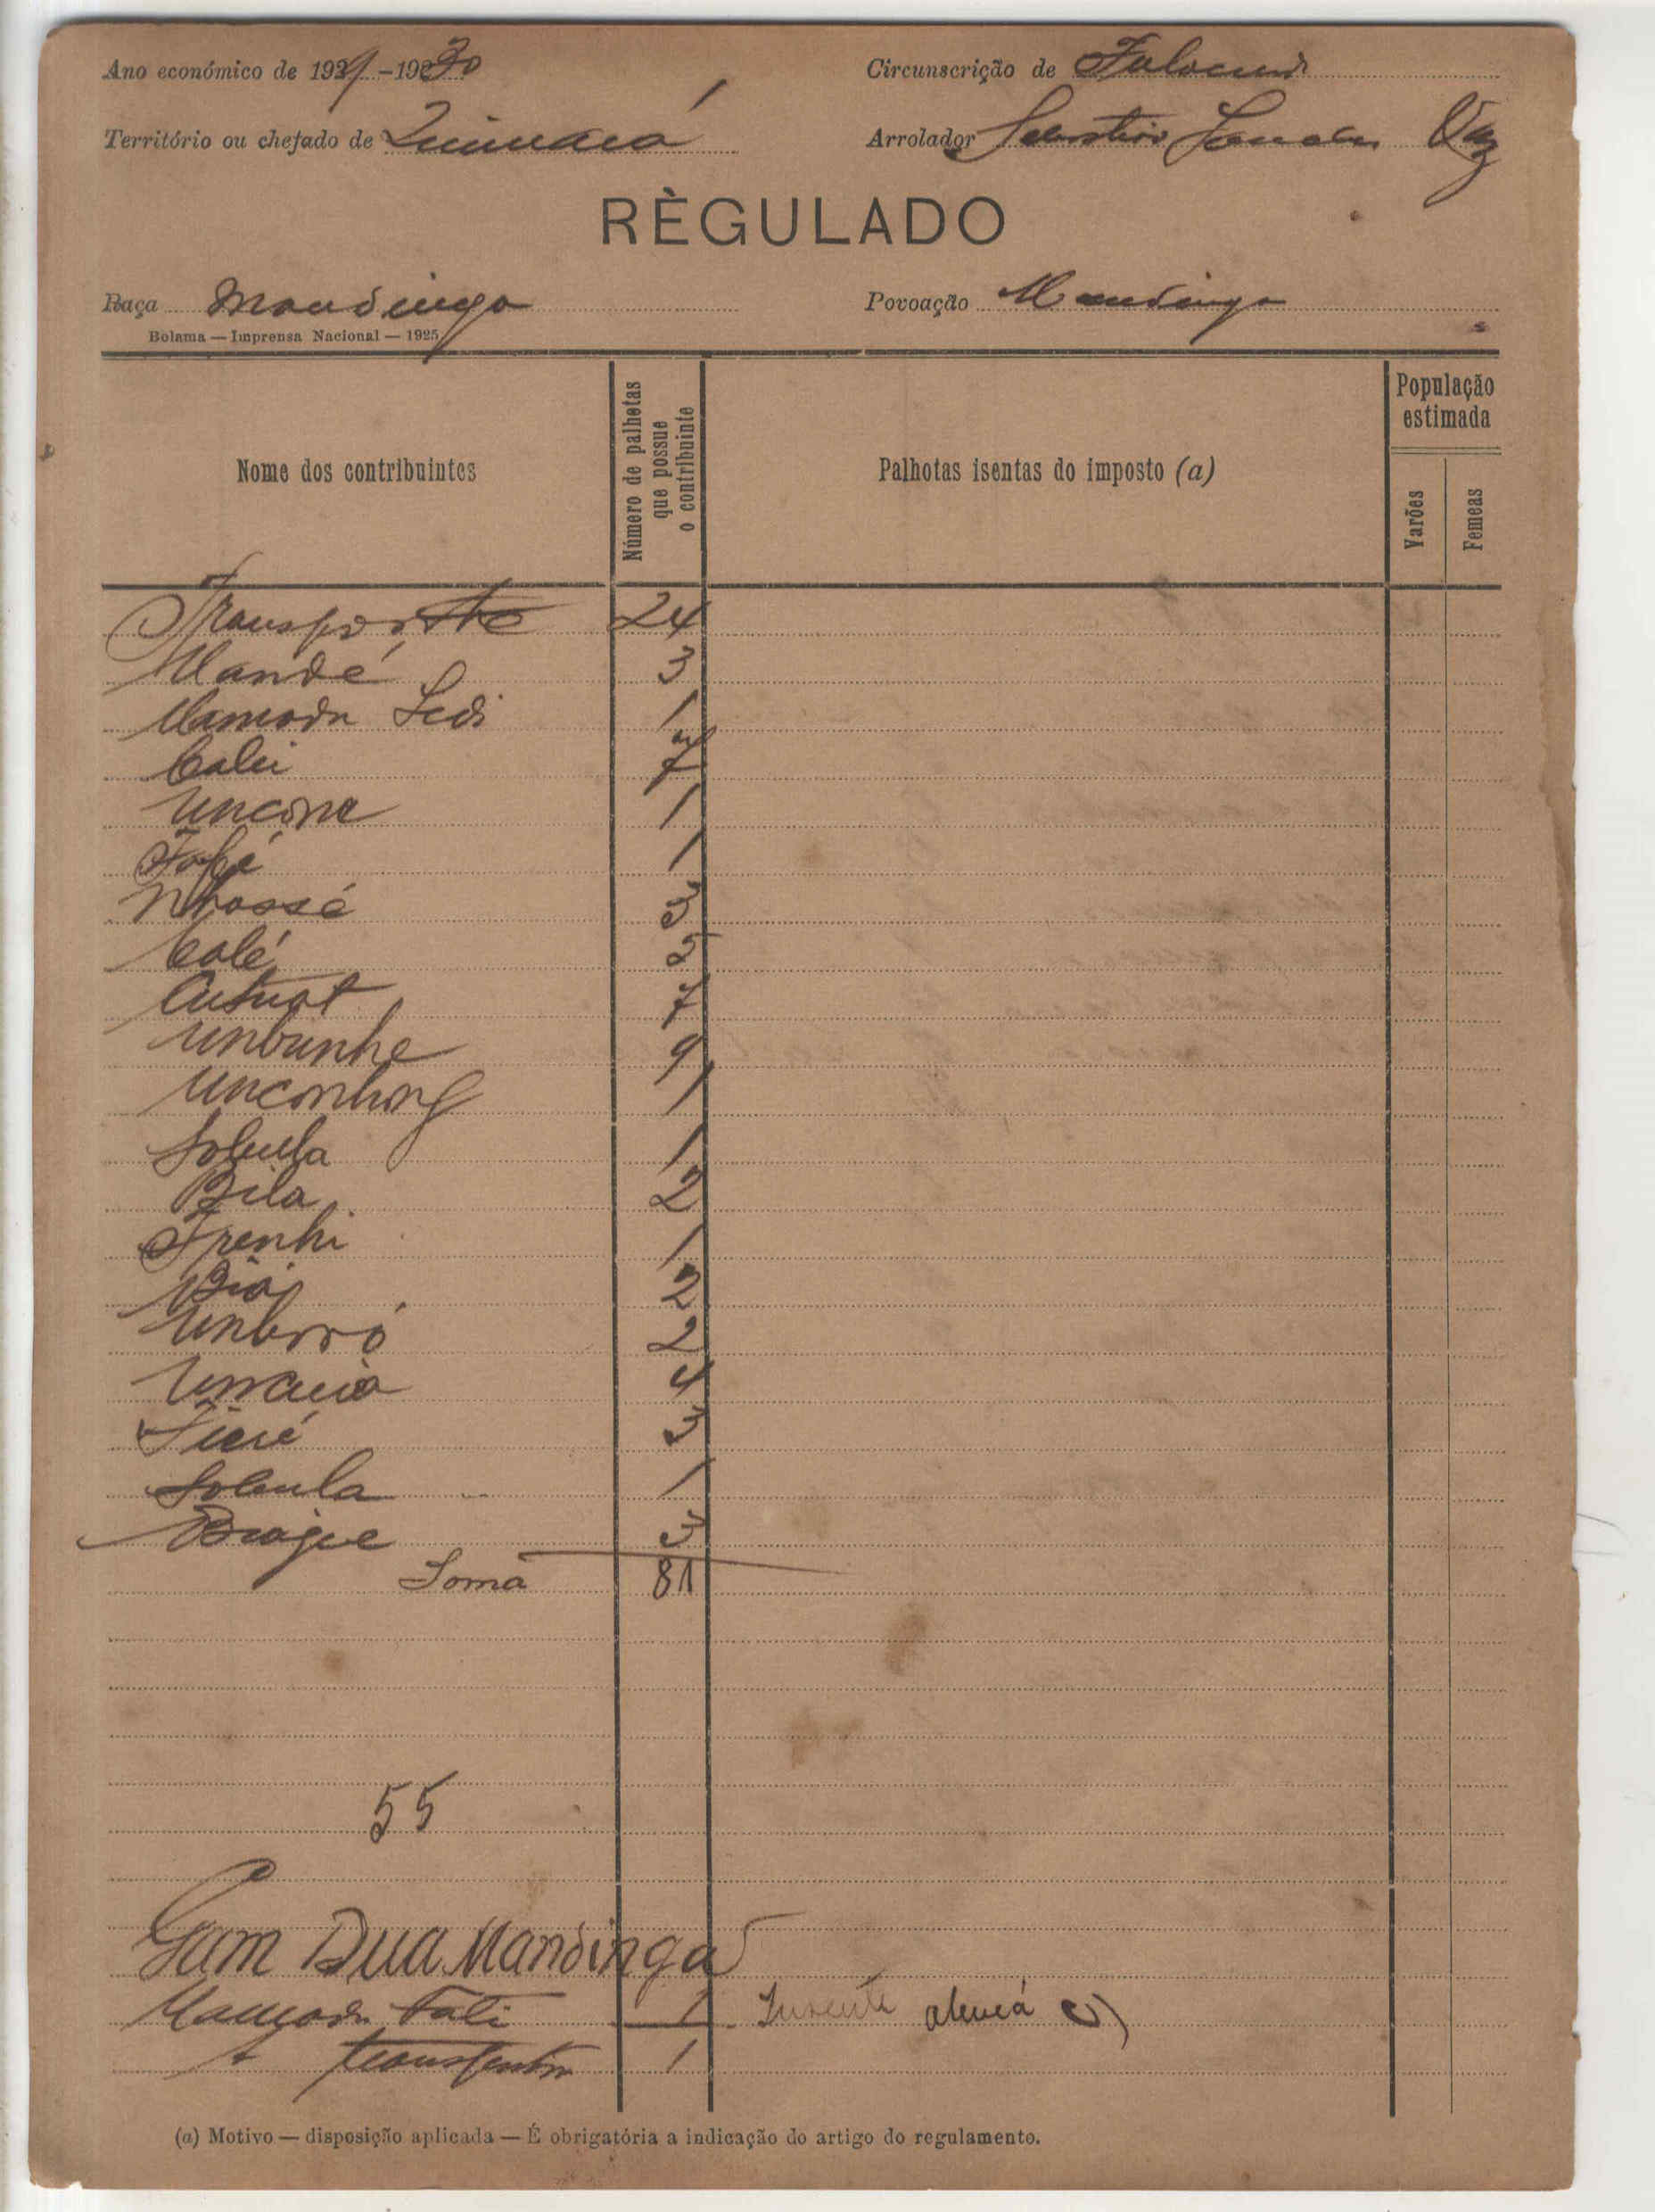 Ano económico de 1929-1930
Circunscrição de Fulacunda
Território ou chefado de Quinnará
Arrolador Sebastião Vaz
RÈGULADO
Raça Mandinga
Povoação Mandinga
Bolama — Imprensa Nacional — 1925
Nome dos contribuintes
Número de palhetas que possue o contribuinte
Palhotas isentas do imposto (a)
População estimada
Varões
Femeas
Transporte 24
Mandé 3
Mamadu Sedi 1
Calui 7
Uncona 1
Fafé 1
Nhassé 3
Calé 2
Cutuat 7
Unbunhe 9
Unconhong 1
Sobula 1
Bila 2
Trenhi 1
Biai 2
Unborró 2
4
Ticré 3
Sobula 1
Biague 3
Soma 81
55
Gam Dua Mandinga
Mamadu Fati 1
transporte 1
(a) Motivo — disposição aplicada — É obrigatória a indicação do artigo do regulamento.